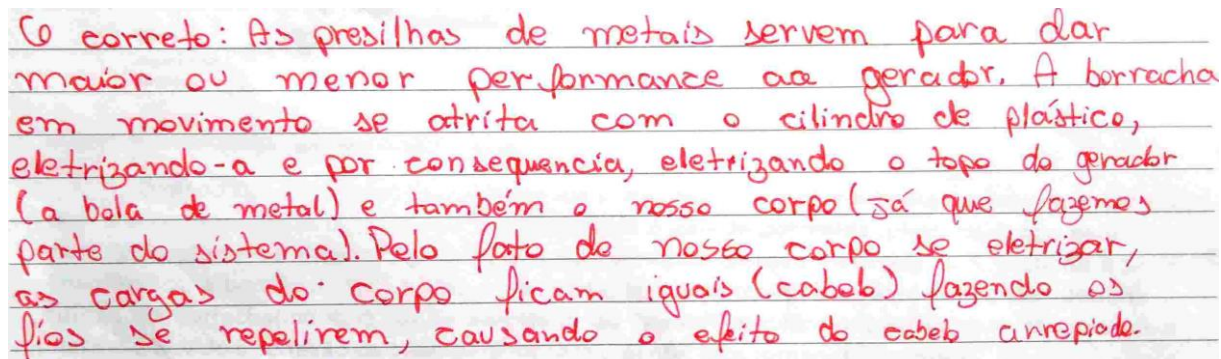 O correto: As presilhas de metais servem para dar
maior ou menor performance ao gerador. A borracha
em movimento se atrita com o cilindro de plástico,
eletrizando-a e por consequencia, eletrizando o topo do gerador
(a bola de metal) e também o nosso corpo (já que fazemos
parte do sistema). Pelo fato de nosso corpo se eletrizar,
as cargas do corpo ficam iguais (cabelo) fazendo os
fios se repelirem, causando o efeito do cabelo arrepiado.